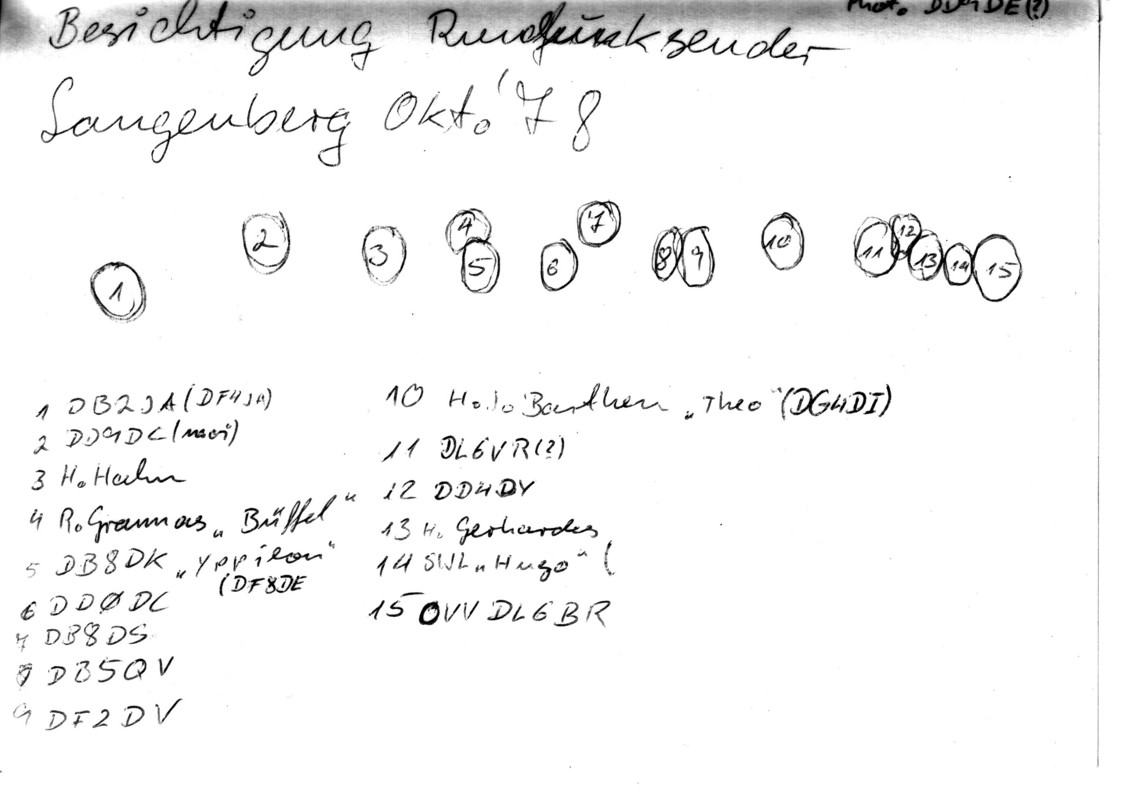 Phot. DD9DE(?)
Besichtigung Rundfunksender
Langenberg Okt. '78
1 2 3 4 5 6 7 8 9 10 11 12 13 14 15
1 DB2JA (DF4JA)
2 DD9DC
3 H. Hahn
4 R. Grammas „Büffel“
5 DB8DK „Yppilon“
(DF8DE
6 DDØDC
7 DB8DS
8 DB5QV
9 DF2DV
10 H.J. Barthen „Theo“ (DG4DI)
11 DL6VR(?)
12 DD4DY
13 H. Gerhardes
14 SWL „Hugo“ (
15 OVV DL6BR